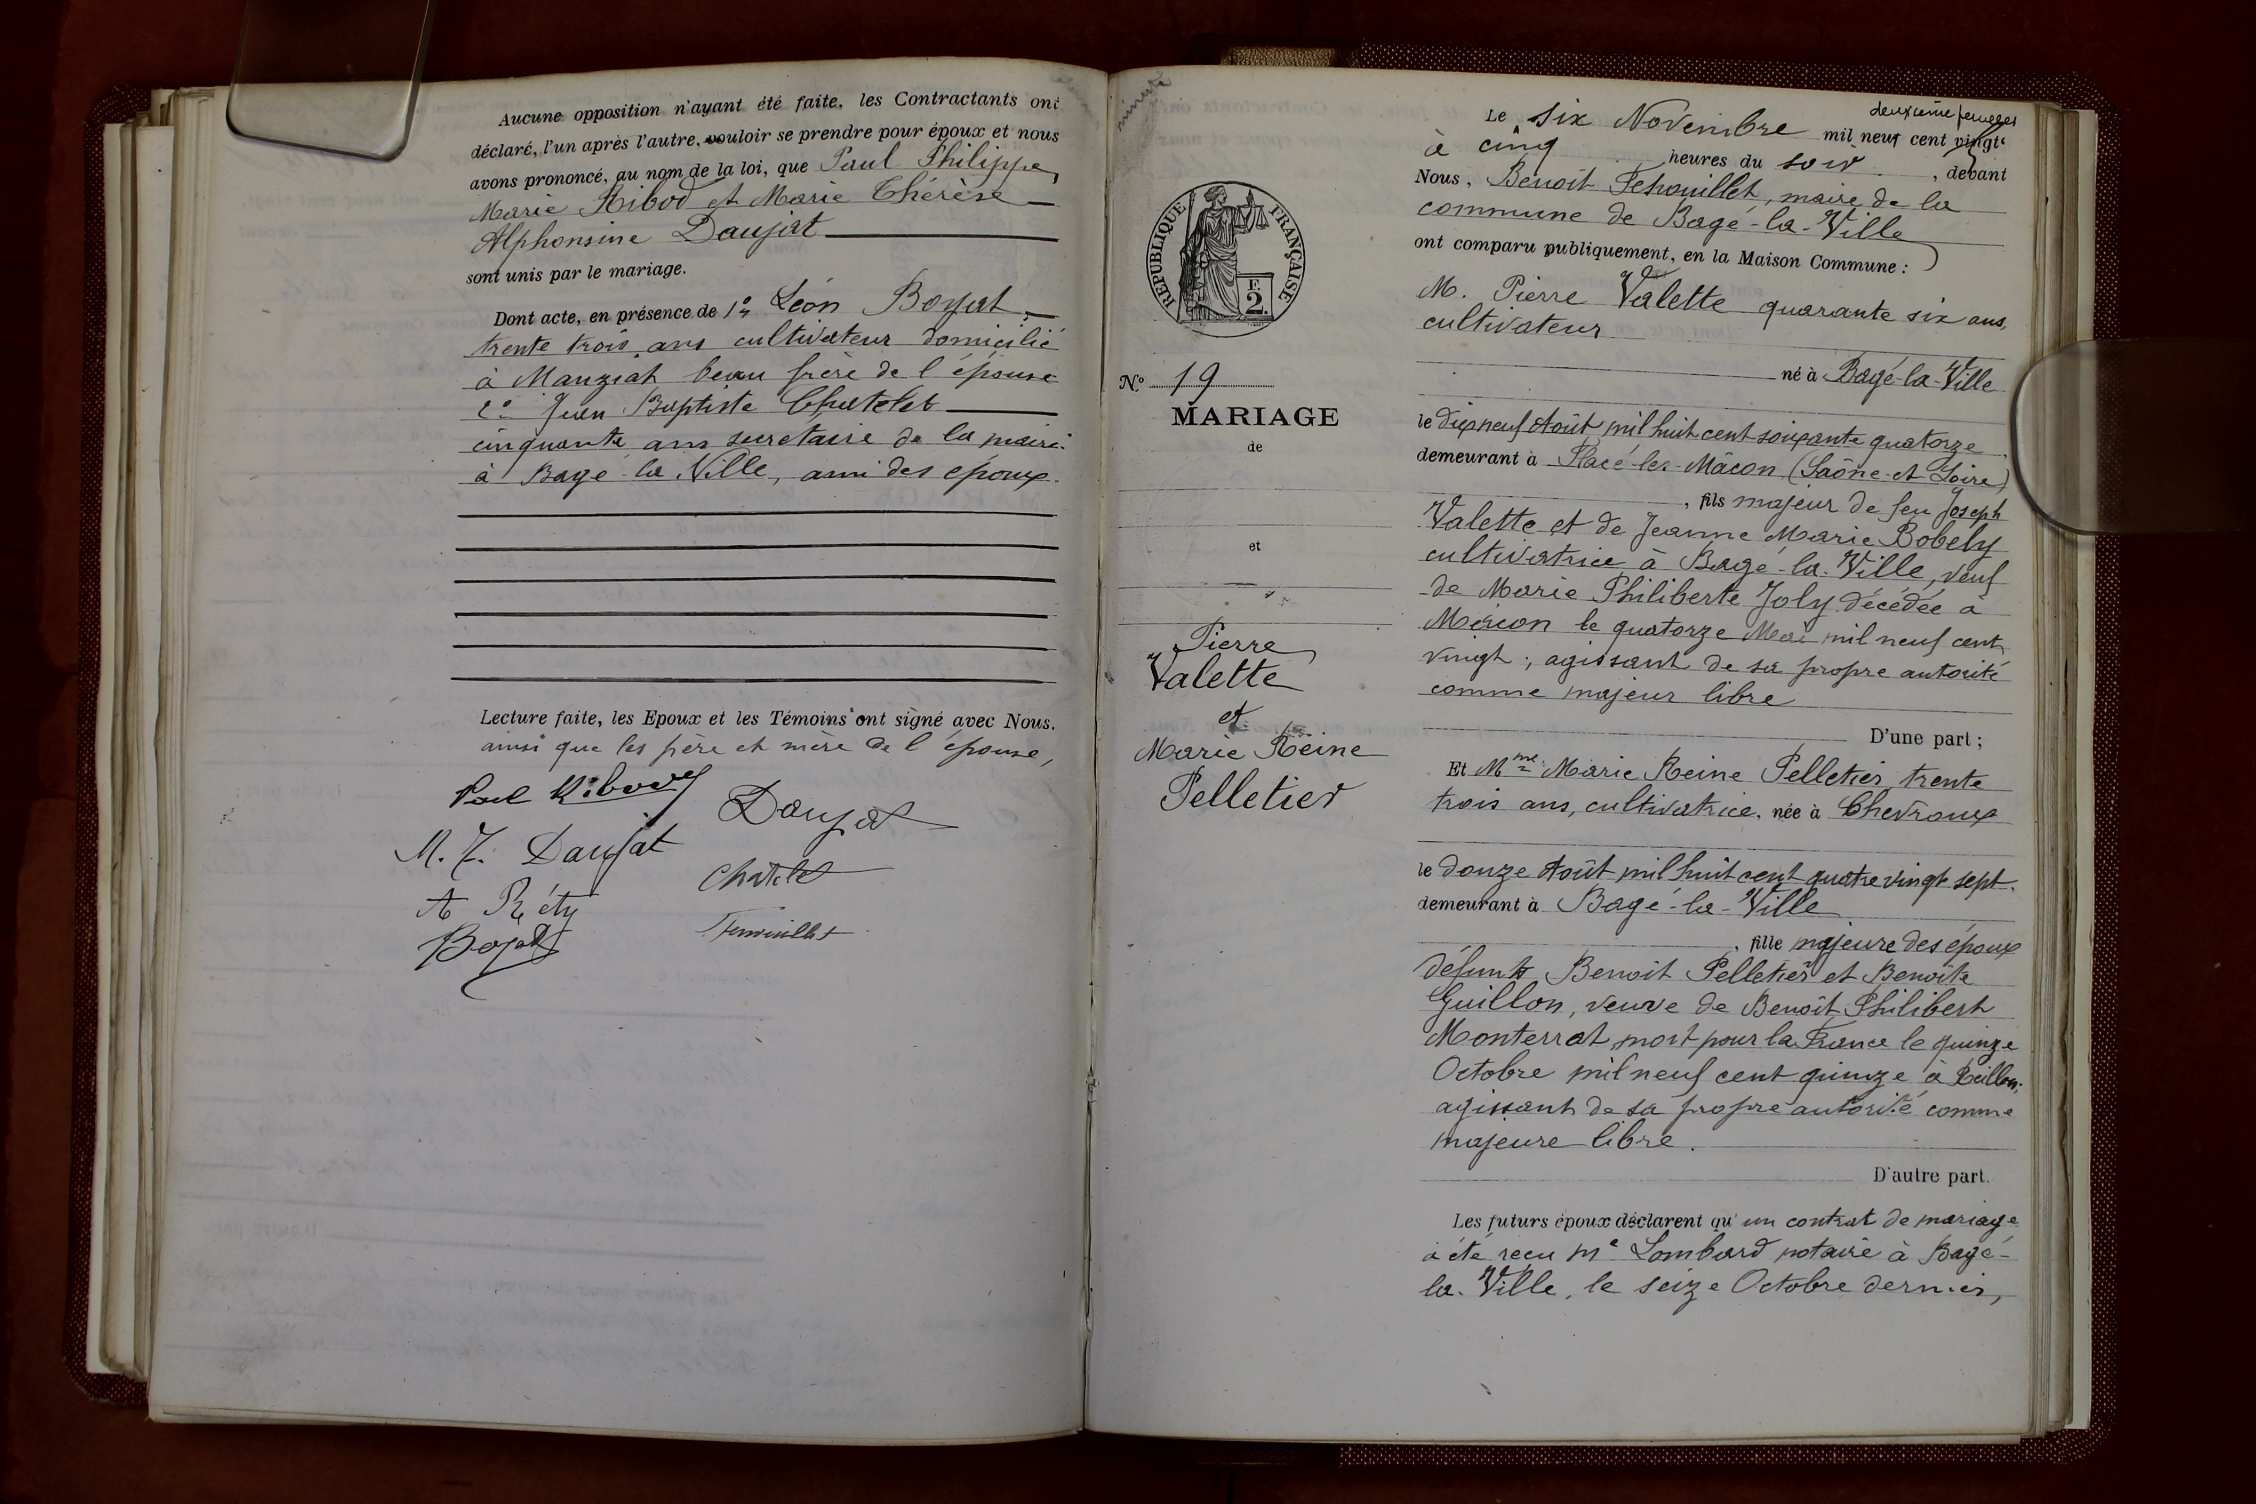 Aucune opposition n'ayant été faite, les Contractants ont
déclaré, l'un après l'autre, vouloir se prendre pour époux et nous
avons prononcé, au nom de la loi, que Paul Philippe
Marie Ribod et Marie Thérèse
Alphonsine Daujat
sont unis par le mariage.
Dont acte, en présence de 1º Léon Boyat,
trente trois ans cultivateur domicilié
à Manziat beau frère de l'épouse
2º Jean Baptiste Chatelet
cinquante ans secrétaire de la mairie
à Bagé-la-Ville, ami des époux.
Lecture faite, les Epoux et les Témoins ont signé avec Nous.
ainsi que les père et mère de l'épouse,
Paul Ribod
Daujat
M. T. Daujat
Chatelet
A Réty
Boyat
REPUBLIQUE FRANÇAISE
F.
2
Nº 19
MARIAGE
de
et
Pierre
Valette
et
Marie Reine
Pelletier
deuxième feuillet
Le six Novembre mil neuf cent vingt
à cinq heures du soir, devant
Nous, Benoît Fenouillet, maire de la
commune de Bagé-la-Ville
ont comparu publiquement, en la Maison Commune :
M. Pierre Valette quarante six ans,
cultivateur
né à Bagé-la-Ville
le dix neuf Août mil huit cent soixante quatorze
demeurant à Flacé-les-Mâcon (Saône-et-Loire)
, fils majeur de feu Joseph
Valette et de Jeanne Marie Bobely
cultivatrice à Bagé-la-Ville, veuf
de Marie Philiberte Joly décédée à
Mâcon le quatorze Mai mil neuf cent
vingt ; agissant de sa propre autorité
comme majeur libre
D'une part ;
Et Mme Marie Reine Pelletier, trente
trois ans, cultivatrice, née à Chevroux
le douze Août mil huit cent quatre vingt sept.
demeurant à Bagé-la-Ville
, fille majeure des époux
défunts Benoît Pelletier et Benoîte
Guillon, veuve de Benoît Philibert
Monterrat, mort pour la France le quinze
Octobre mil neuf cent quinze à Reillon;
agissant de sa propre autorité comme
majeure libre.
D'autre part.
Les futurs époux déclarent qu'un contrat de mariage
a été reçu Me Lombard notaire à Bagé-
la-Ville, le seize Octobre dernier,